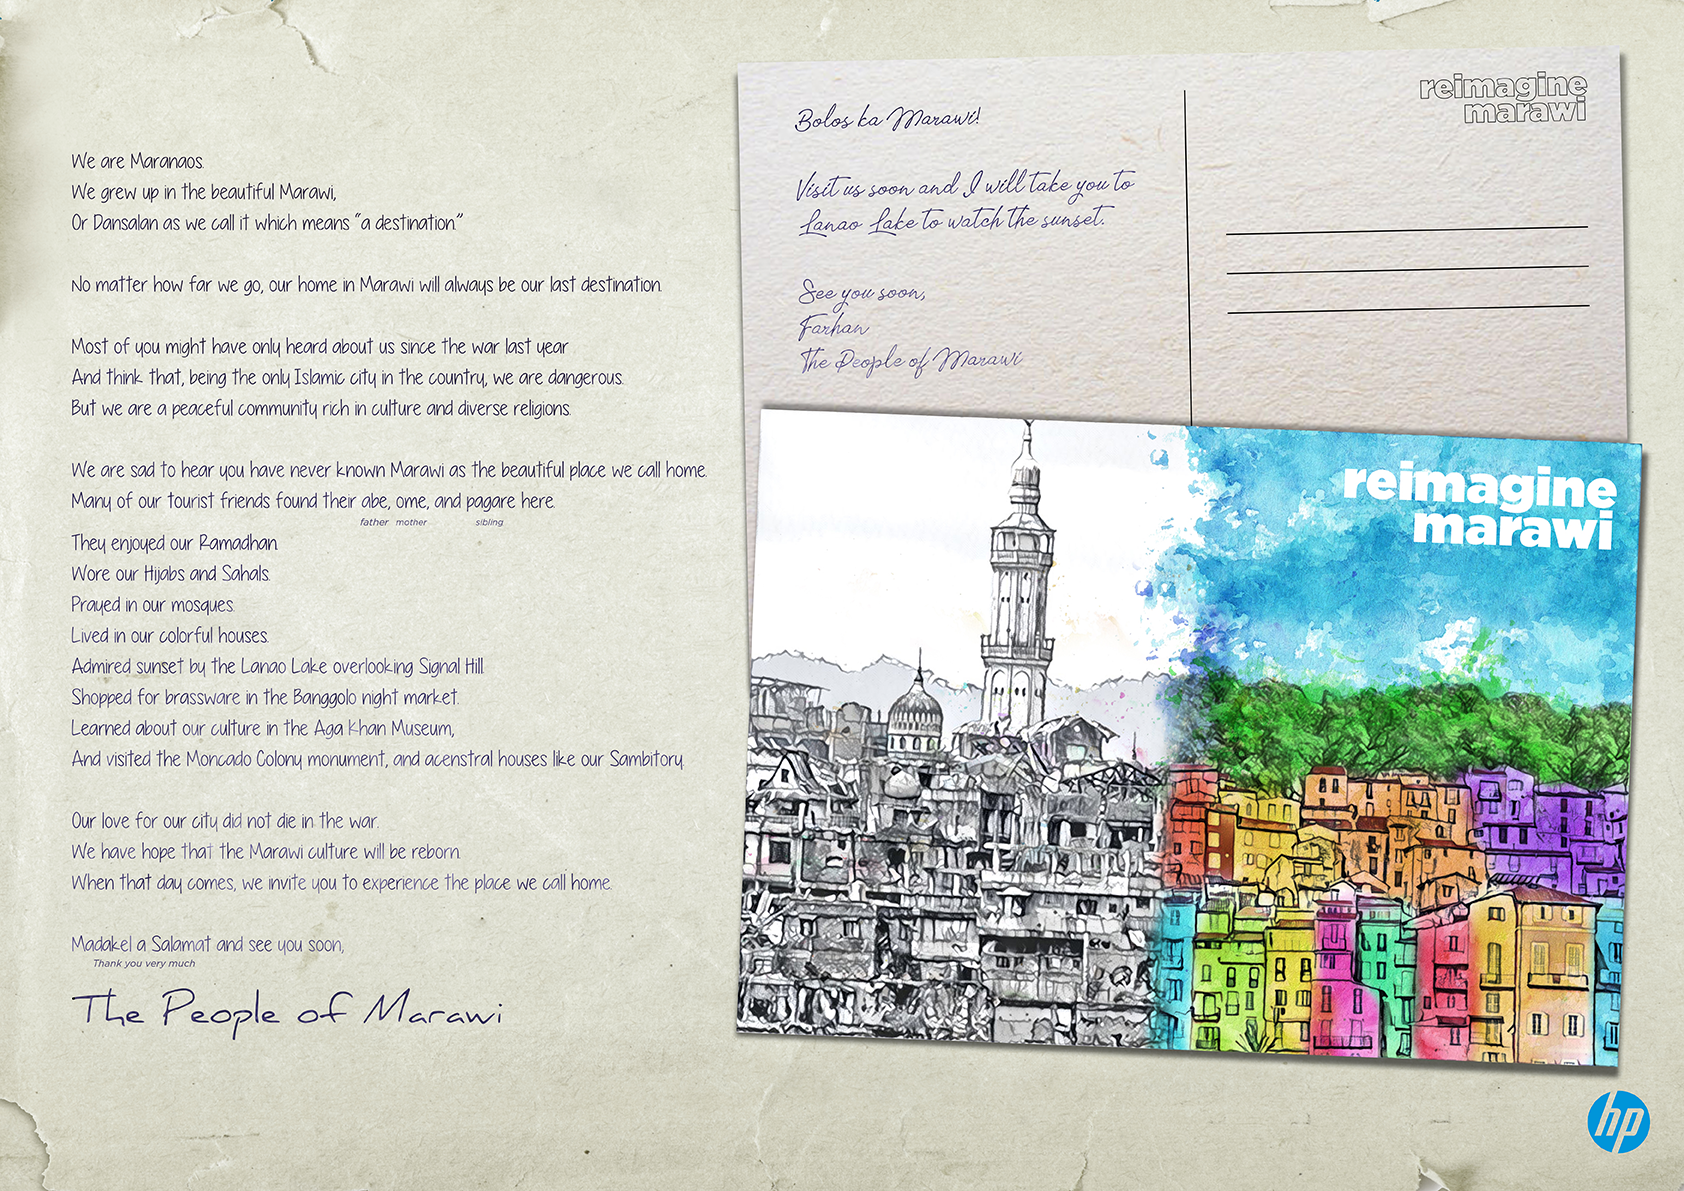 We are Maranaos.
We grew up in the beautiful Marawi,
Or Dansalan as we call it which means "a destination."
No matter how far we go, our home in Marawi will always be our last destination.
Most of you might have only heard about us since the war last year
And think that, being the only Islamic city in the country, we are dangerous.
But we are a peaceful community rich in culture and diverse religions.
We are sad to hear you have never known Marawi as the beautiful place we call home.
Many of our tourist friends found their abe, ome, and pagare here.
father mother sibling
They enjoyed our Ramadhan.
Wore our Hijabs and Sahals.
Prayed in our mosques.
Lived in our colorful houses.
Admired sunset by the Lanao Lake overlooking Signal Hill.
Shopped for brassware in the Banggolo night market.
Learned about our culture in the Aga Khan Museum,
And visited the Moncado Colony monument, and acenstral houses like our Sambitory.
Our love for our city did not die in the war.
We have hope that the Marawi culture will be reborn.
When that day comes, we invite you to experience the place we call home.
Madakel a Salamat and see you soon,
Thank you very much
The People of Marawi
Bolos ka Marawi!
Visit us soon and I will take you to
Lanao Lake to watch the sunset.
See you soon,
Farhan
The People of Marawi
reimagine
marawi
reimagine
marawi
hp